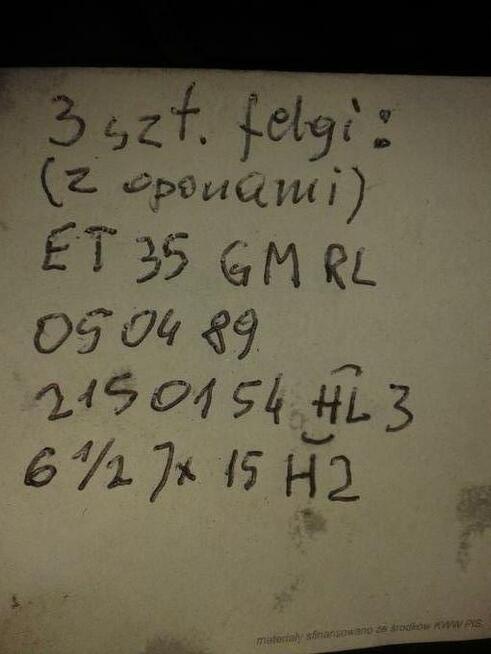 3 szt. felgi:
(z oponami)
ET 35 GM RL
05 04 89
2150154 HL 3
6 1/2 J x 15 H2
materiały sfinansowano ze środków KWW PIS.